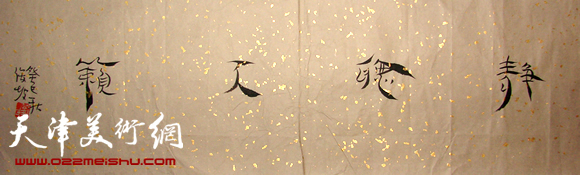 静聽天籟
癸巳秋
天津美術網
www.022meishu.com